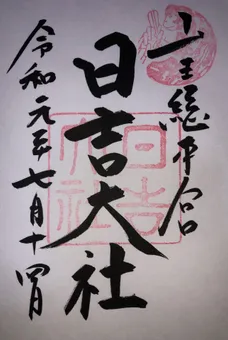 山王総本宮
日吉大社
令和元年七月十四日
日吉
大社